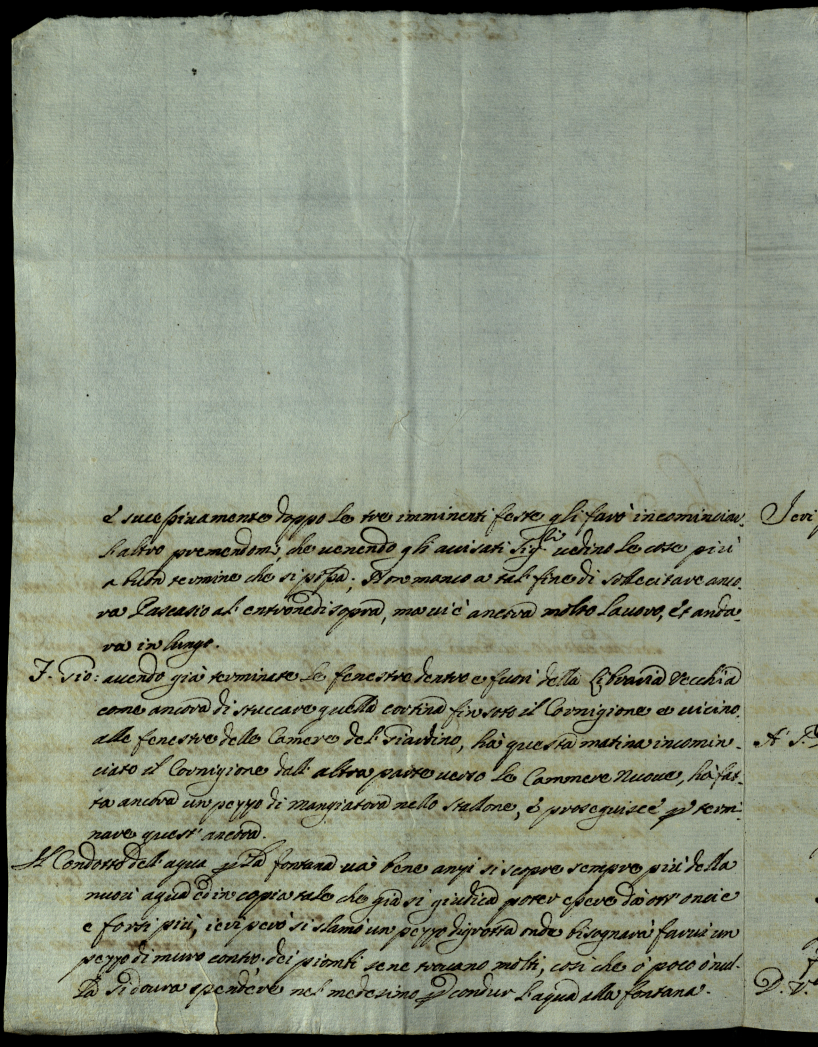 è succesivamente doppo le tre imminenti feste gli farò incominciar
l'altro premendomi, che venendo gli avvisati Sigri vedino le cose più
a buon termine che si possa; Non manco a tal fine di sollecitare anco-
ra Pascasio al entrone di sopra, ma vi è ancora molto lavoro, et anda-
rà in lungo.
F. Gio: avendo già terminate le fenestre dentro e fuori della Libraria Vecchia
come ancora di stuccare quella cortina fin soto il Cornigione e vicino
alle fenestre delle Camere del Giardino, hà questa matina incomin-
ciato il Cornigione dall'altra parte verso le Cammere Nuove, hà fat-
ta ancora un pezzo di mangiatora nello stallone, è proseguisce p termi-
nare quest'ancora.
Il Condotto dell'aqua p la fontana và bene anzi si scopre sempre più della
nuova aqua ed in copia tale che già si giudica poter essere da ott'oncie
e forsi più, ieri però si slamò un pezzo di grotta onde bisognarà farvi un
pezzo di muro contro. dei piombi se ne trovano molti, così che ò poco ò nul-
la si dourà spendere nel medesimo p condur l'aqua alla fontana.
Ieri
A S.
D. V.